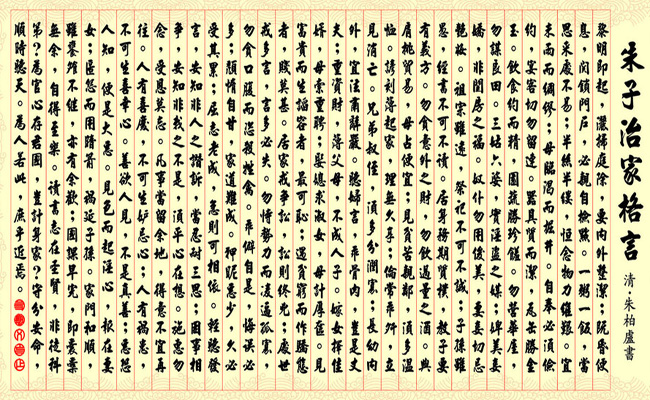 朱子治家格言
清·朱柏廬書
黎明即起，灑掃庭除 要內外整潔；既昏便
息，關鎖門戶，必親自檢點。一粥一飯，當
思來處不易；半絲半縷，恒念物力維艱。宜
未雨而綢繆；毋臨渴而掘井。自奉必須儉
約，宴客切勿留連。器具質而潔，瓦缶勝金
玉。飲食約而精，園蔬勝珍饈。勿營華屋，
勿謀良田。三姑六婆，實淫盜之媒；婢美妾
嬌，非閨房之福。奴仆勿用俊美，妻妾切忌
艷妝。祖宗雖遠，祭祀不可不誠 子孫雖
愚，經書不可不讀。居身務期質樸，教子要
有義方。勿貪意外之財，勿飲過量之酒。與
肩挑貿易，毋占便宜；見貧苦親鄰，須多溫
恤。刻薄起家，理無久享；倫常乖舛，立
見消亡。兄弟叔侄，須多分潤寡；長幼內
外，宜法肅辭嚴。聽婦言，乖骨肉，豈是丈
夫；重資財，薄父母，不成人子。嫁女擇佳
婿，毋索重聘；娶媳求淑女，毋計厚奩。見
富貴而生諂容者，最可恥；遇貧窮而作驕態
者，賤莫甚。居家戒爭訟，訟則終凶；處世
戒多言，言多必失。勿恃勢力而凌逼孤寡，
勿貪口腹而恣殺牲禽。乖僻自是，悔誤必
多；頹惰自甘，家道難成。狎昵惡少，久必
受其累；屈志老成，急則可相依。輕聽發
言，安知非人之譖訴 當忍耐三思；因事相
爭，安知非我之不是，須平心再想。施惠勿
念，受恩莫忘。凡事當留餘地，得意不宜再
往。人有喜慶，不可生妒忌心；人有禍患，
不可生喜幸心。善欲人見 不是真善；惡恐
人知，便是大惡。見色而起淫心，報在妻
女；匿怨而用暗箭，禍延子孫。家門和順，
雖饔飧不繼，亦有餘歡；國課早完，即囊橐
無余，自得至樂。讀書志在聖賢 非徒科
第；為官心存君國，豈計身家？守分安命，
順時聽天。為人若此，庶乎近焉。